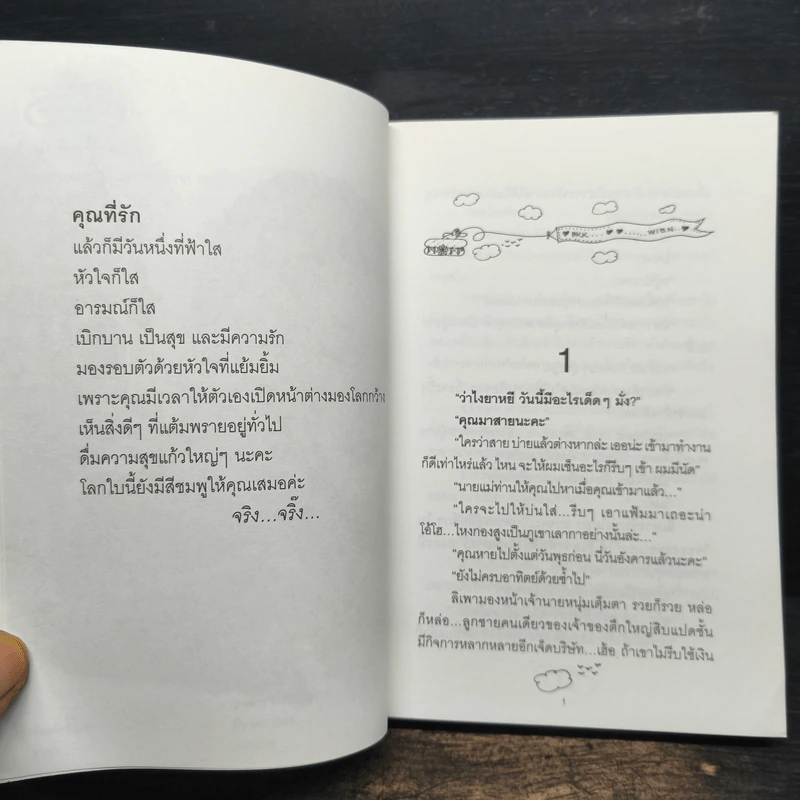 คุณที่รัก
แล้วก็มีวันหนึ่งที่ฟ้าใส
หัวใจก็ใส
อารมณ์ก็ใส
เบิกบาน เป็นสุข และมีความรัก
มองรอบตัวด้วยหัวใจที่แย้มยิ้ม
เพราะคุณมีเวลาให้ตัวเองเปิดหน้าต่างมองโลกกว้าง
เห็นสิ่งดีๆ ที่แต้มพรายอยู่ทั่วไป
ดื่มความสุขแก้วใหญ่ๆ นะคะ
โลกใบนี้ยังมีสีชมพูให้คุณเสมอค่ะ
จริง...จริ๊ง...
BKK... ♥♥......WIEN..♥
1
"ว่าไงยาหยี วันนี้มีอะไรเด็ดๆ มั่ง?"
"คุณมาสายนะคะ"
"ใครว่าสาย บ่ายแล้วต่างหากล่ะ เออน่ะ เข้ามาทำงาน
ก็ดีเท่าไหร่แล้ว ไหน จะให้ผมเซ็นอะไรก็รีบๆ เข้า ผมมีนัด"
"นายแม่ท่านให้คุณไปหาเมื่อคุณเข้ามาแล้ว..."
"ใครจะไปให้บ่นใส่...รีบๆ เอาแฟ้มมาเถอะน่า
โอ้โฮ...ไหงกองสูงเป็นภูเขาเลากาอย่างนั้นล่ะ..."
"คุณหายไปตั้งแต่วันพุธก่อน นี่วันอังคารแล้วนะคะ"
"ยังไม่ครบอาทิตย์ด้วยซ้ำไป"
ลิเพามองหน้าเจ้านายหนุ่มเต็มตา รวยก็รวย หล่อ
ก็หล่อ...ลูกชายคนเดียวของเจ้าของตึกใหญ่สิบแปดชั้น
มีกิจการหลากหลายอีกเจ็ดบริษัท...เฮ้อ ถ้าเขาไม่รีบใช้เงิน
1